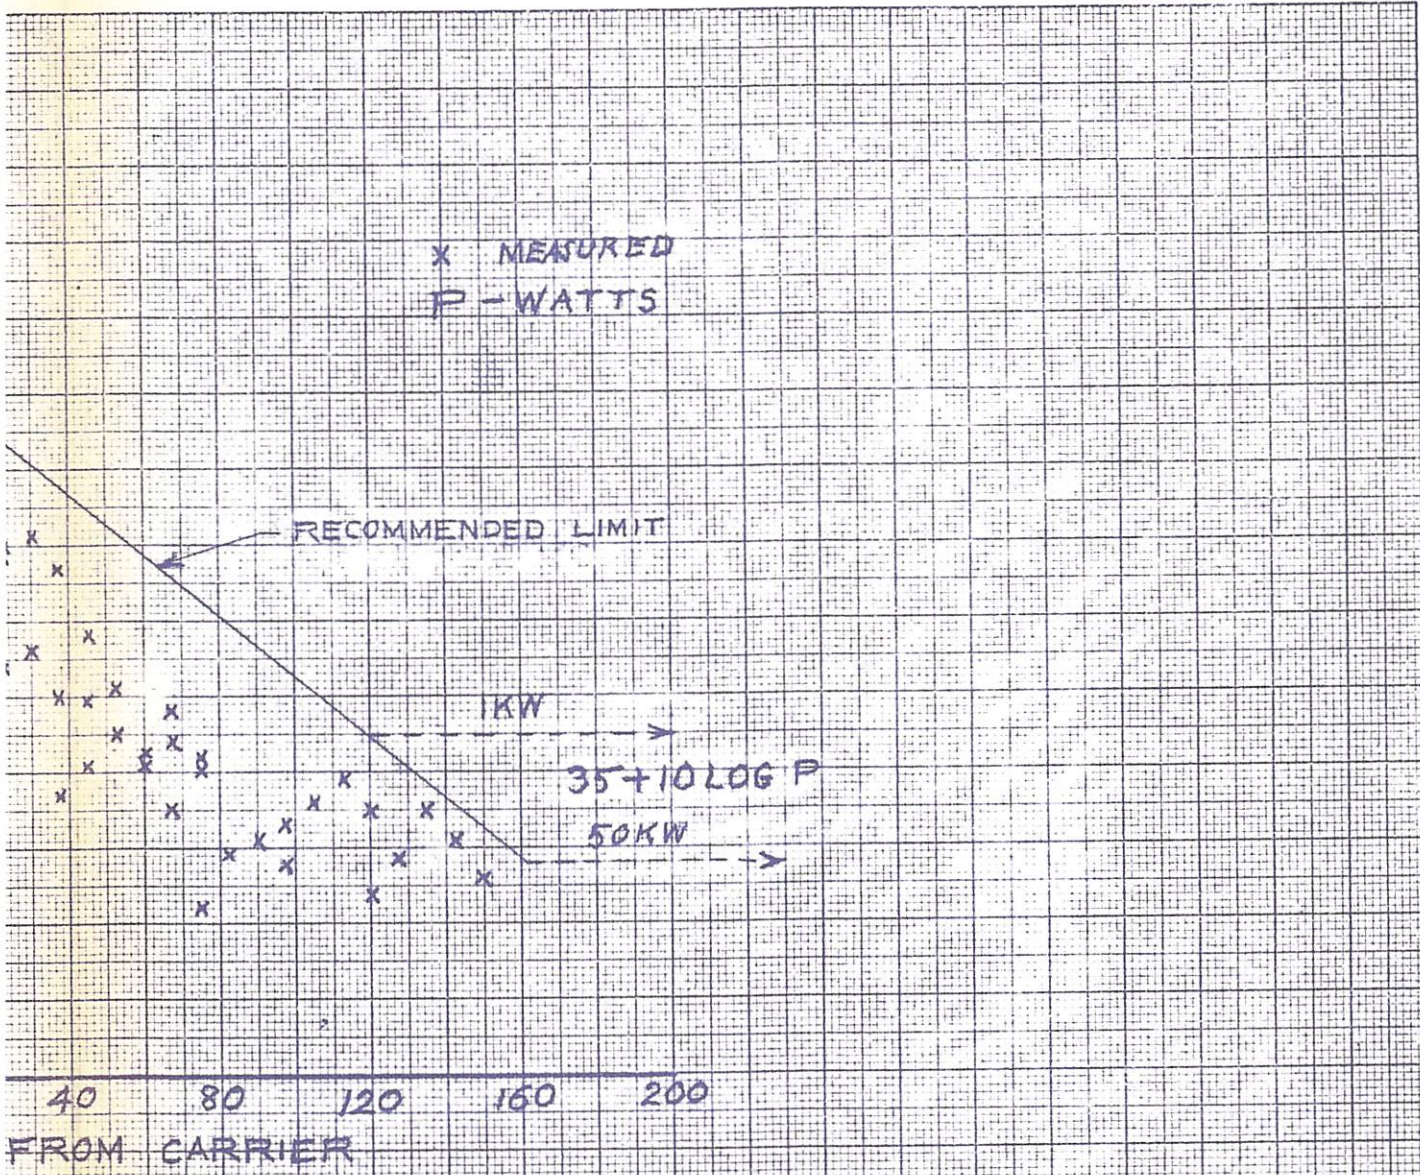 x MEASURED
P - WATTS
RECOMMENDED LIMIT
1KW
35+10 LOG P
50KW
40 80 120 160 200
FROM CARRIER